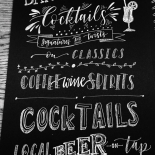 Cocktails
Signature Twists
on CLASSICS
COFFEE wine SPIRITS
COCKTAILS
LOCAL BEER on tap